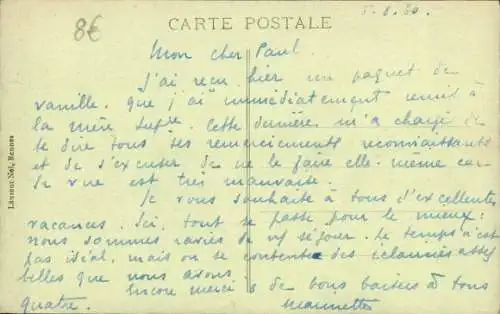 8€
CARTE POSTALE
5.8.30.
Mon cher Paul.
J'ai reçu hier un paquet de
vanille. que j'ai immédiatement remis à
la mère supre. Cette dernière m'a chargé de
te dire tous ses remerciements reconnaissants
et de s'excuser de ne le faire elle-même car
sa vue est très mauvaise.
Je vous souhaite à tous d'excellentes
vacances. Ici, tout se passe pour le mieux:
nous sommes ravies de notre séjour. Le temps n'est
pas idéal, mais on se contente des éclaircies assez
belles que nous avons.
Encore merci & de bons baisers à tous
quatre.
Laurent Nel, Rennes